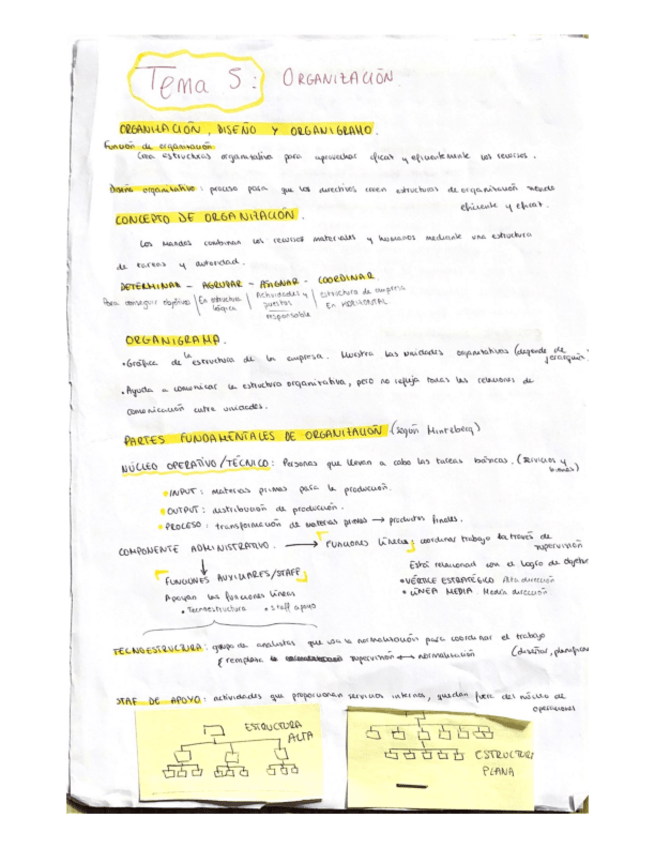 Tema 5: ORGANIZACIÓN
ORGANIZACIÓN, DISEÑO Y ORGANIGRAMO.
Función de organización:
Crea estructuras organizativa para aprovechar eficaz y eficientemente los recursos.
Diseño organizativo: proceso para que los directivos creen estructuras de organización
eficiente y eficaz.
CONCEPTO DE ORGANIZACIÓN.
Los mandos combinan los recursos materiales y humanos mediante una estructura
de tareas y autoridad.
DETERMINAR - AGRUPAR - ASIGNAR - COORDINAR
Para conseguir objetivos | En estructura lógica | Actividades y puestos responsable | estructura de empresa En HORIZONTAL
ORGANIGRAMA.
• Gráfica de la estructura de la empresa. Muestra las unidades organizativas (depende de jerarquía)
• Ayuda a comunicar la estructura organizativa, pero no refleja todas las relaciones de
comunicación entre unidades.
PARTES FUNDAMENTALES DE ORGANIZACIÓN (según Mintzberg)
NÚCLEO OPERATIVO/TÉCNICO: Personas que llevan a cabo las tareas básicas. (servicios y bienes)
• INPUT: materias primas para la producción.
• OUTPUT: distribución de producción.
• PROCESO: transformación de materias primas → productos finales.
COMPONENTE ADMINISTRATIVO. → FUNCIONES LÍNEAS: coordinar trabajo a través de
supervisión
Está relacionad con el logro de
• VÉRTICE ESTRATÉGICO Alta dirección
• LÍNEA MEDIA. Media dirección
↓
FUNCIONES AUXILIARES/STAFF
Apoyan las funciones líneas
• Tecnoestructura • staff apoyo
TECNOESTRUCTURA: grupo de analistas que usa la normalización para coordinar el trabajo
remplaza supervisión ↔ normalización (diseñar, planificar
STAF DE APOYO: actividades que proporcionan servicios internos, quedan fuera del núcleo de
operaciones
ESTRUCTURA
ALTA
ESTRUCTURA
PLANA